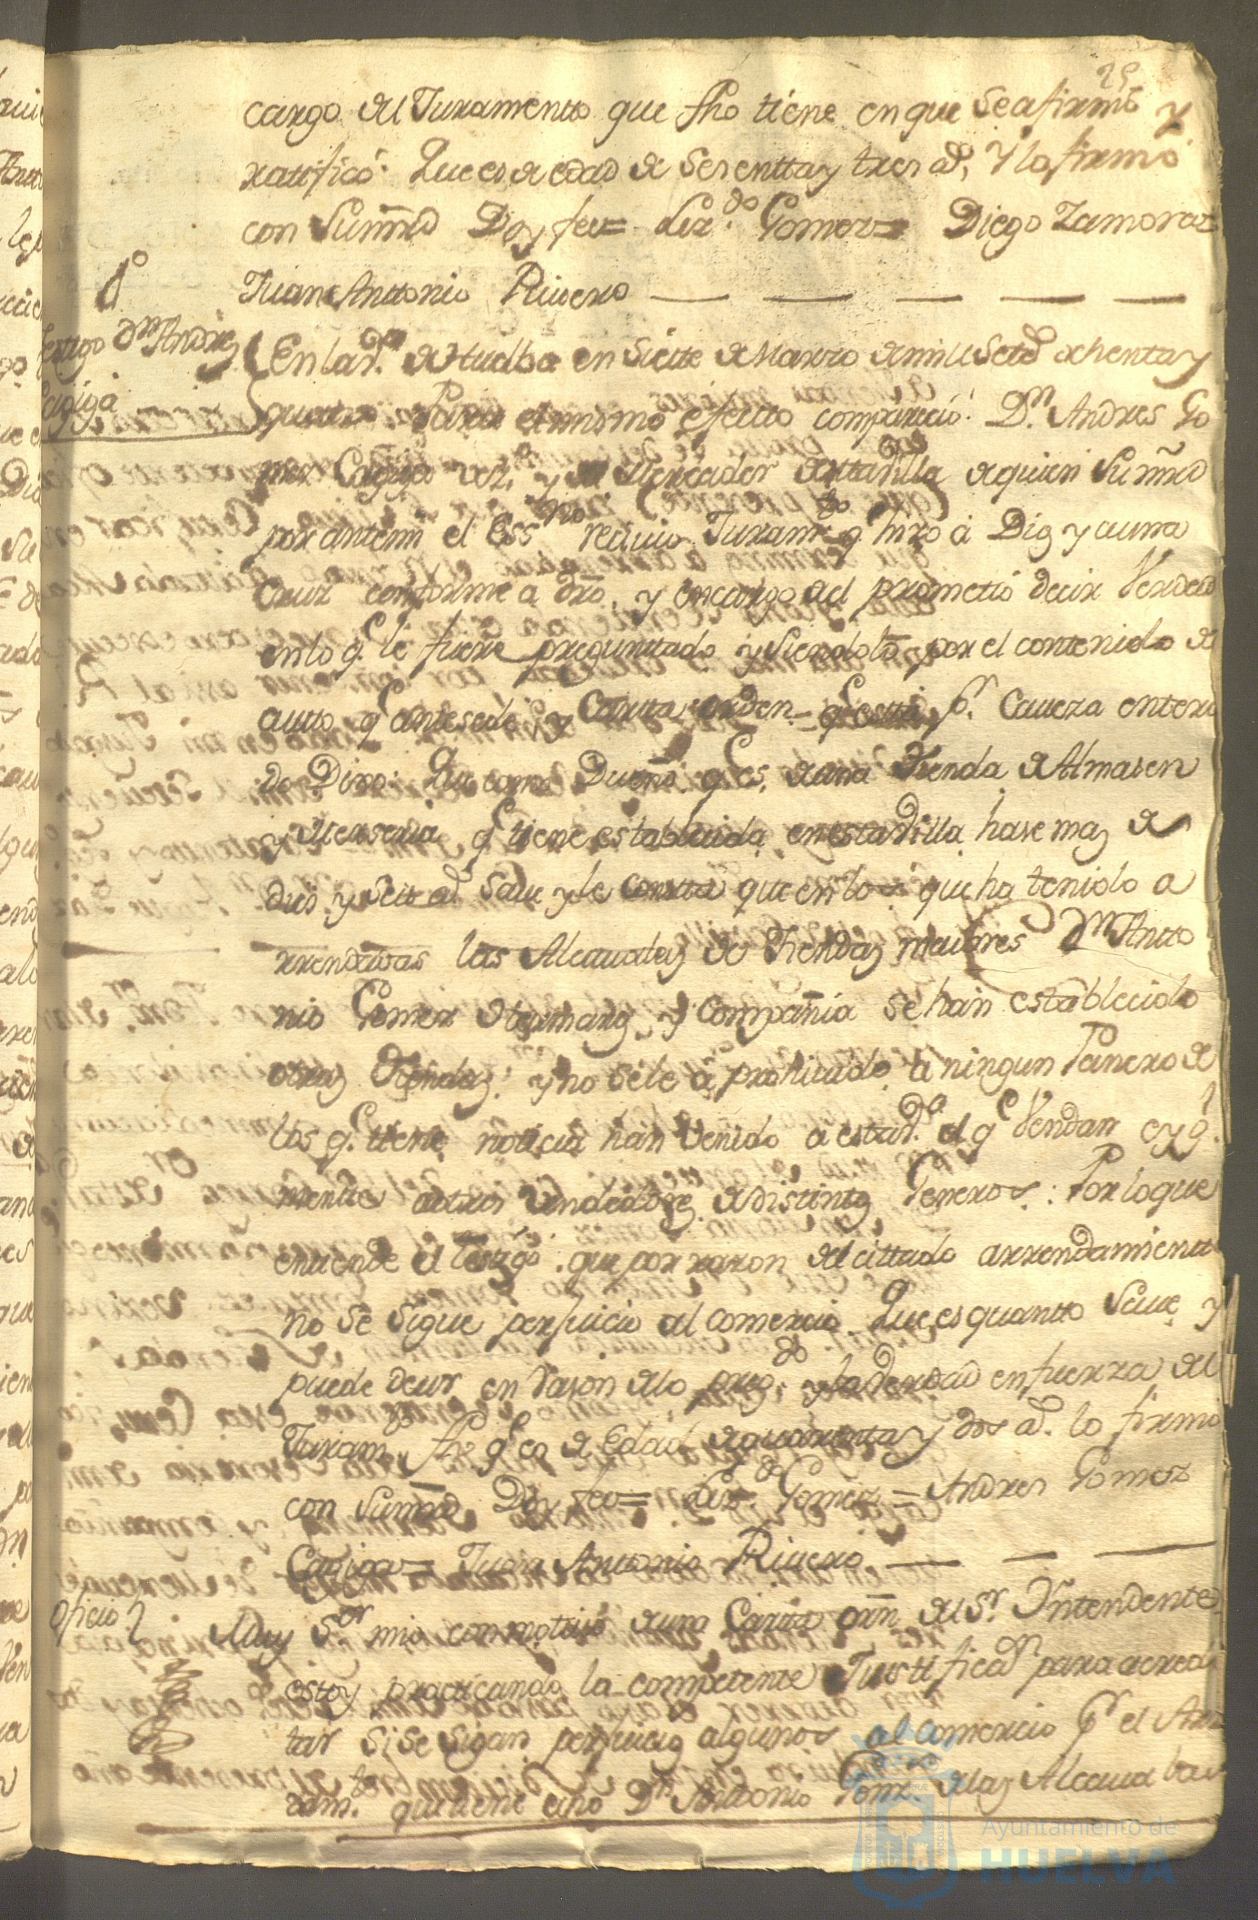 25
cargo del Juramento que fho tiene en que se afirmó y
ratificó: Que es de edad de sesentta y tres aº, Y lo firmó
con Sumrd Doy fee= Lizdo. Gomez= Diego Zamoraz
Juan Anttonio Rivero
tesstigo Dn Andres
Cagiga
En la va. de Huelba en Siette de Marzo de mill Setts ochenta y
quatro Para el mismo efectto compareció Dn. Andres Go
mez Cagiga vezº. y Mercader de esta Villa de quien Sumrd
por ante mi el Essno recivio Juramto q hizo á Dios y a una
Cruz conforme a dro, y en cargo del prometió decir Verdad
en lo q le fuere preguntado y siendolo por el contenido de
autto q antesede, y Cartta orden q esttá pr. Caveza entera
do Dixo: Que como Dueño q es de una Tienda de Almasen
y Merseria q tiene establecida en esta Villa hase mas de
dies y seis as save y le constta que en los que ha tenido a
rrendadas las Alcavalas de Thendas maiores Dn Antto
nio Gomez y Compañia se han establecido
otras Tiendas y no se le á prohivido á ningun Panero de
los q tiene noticia han venido a esta va. el q Vendan e yg
mente a otros vendedores de distintos Generos: Por lo que
entiende el testigo que por razon del cittado arrendamientto
no se sigue perjuicio al comercio. Que es quantto Save y
puede decir en Rason de lo pregdo y la verdad en fuerza del
Juramto fho q es de Edad de quarenta y dos as. lo firmó
con Sumrd Doy fee= Lizdo. Gomez= Andres Gomez
Cagiga= Juan Antonio Rivero
Oficio
Muy Sor mio con motivo de una Cartta orn del Sr. Yntendente
estoy practicando la competente Justificasn para acredi
tar si se sigan perjuicios algunos al comercio pr el Arr
damto. que tiene echo Dn Antonio Gomz. de las Alcavalas
Ayuntamiento de
HUELVA